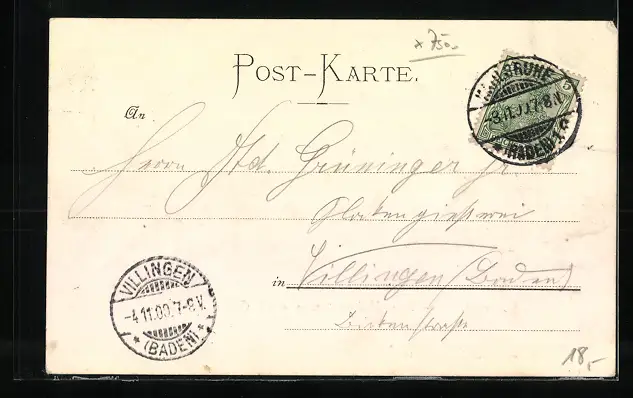 * 750.-
POST-KARTE.
KARLSRUHE
-3.11.00.7-8.V.
* (BADEN) 1.c.
5
An
Herrn Ad. Grüninger jr.
Glockengießerei
VILLINGEN
-4.11.00.7-8.V.
* (BADEN) *
in Villingen (Baden)
18,-